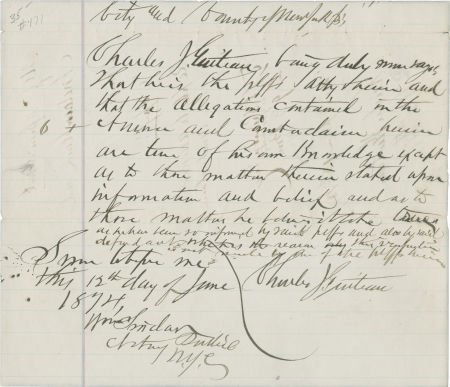 35
#471
City and County of New York ss,
Charles J. Guiteau, being duly sworn says,
that he is the plffs Atty herein and
that the allegations contained in the
Answer and Counterclaim herein
are true of his own knowledge except
as to those matters therein stated upon
information and belief and as to
those matters he believes it to be
as he has been so informed by said plffs and also by said
defendant, the reason why this verification
is not made by one of the plffs herein
Sworn before me
this 12th day of June
1874,
Charles J. Guiteau
Wm Sinclair
Notary Public
N.Y.C.